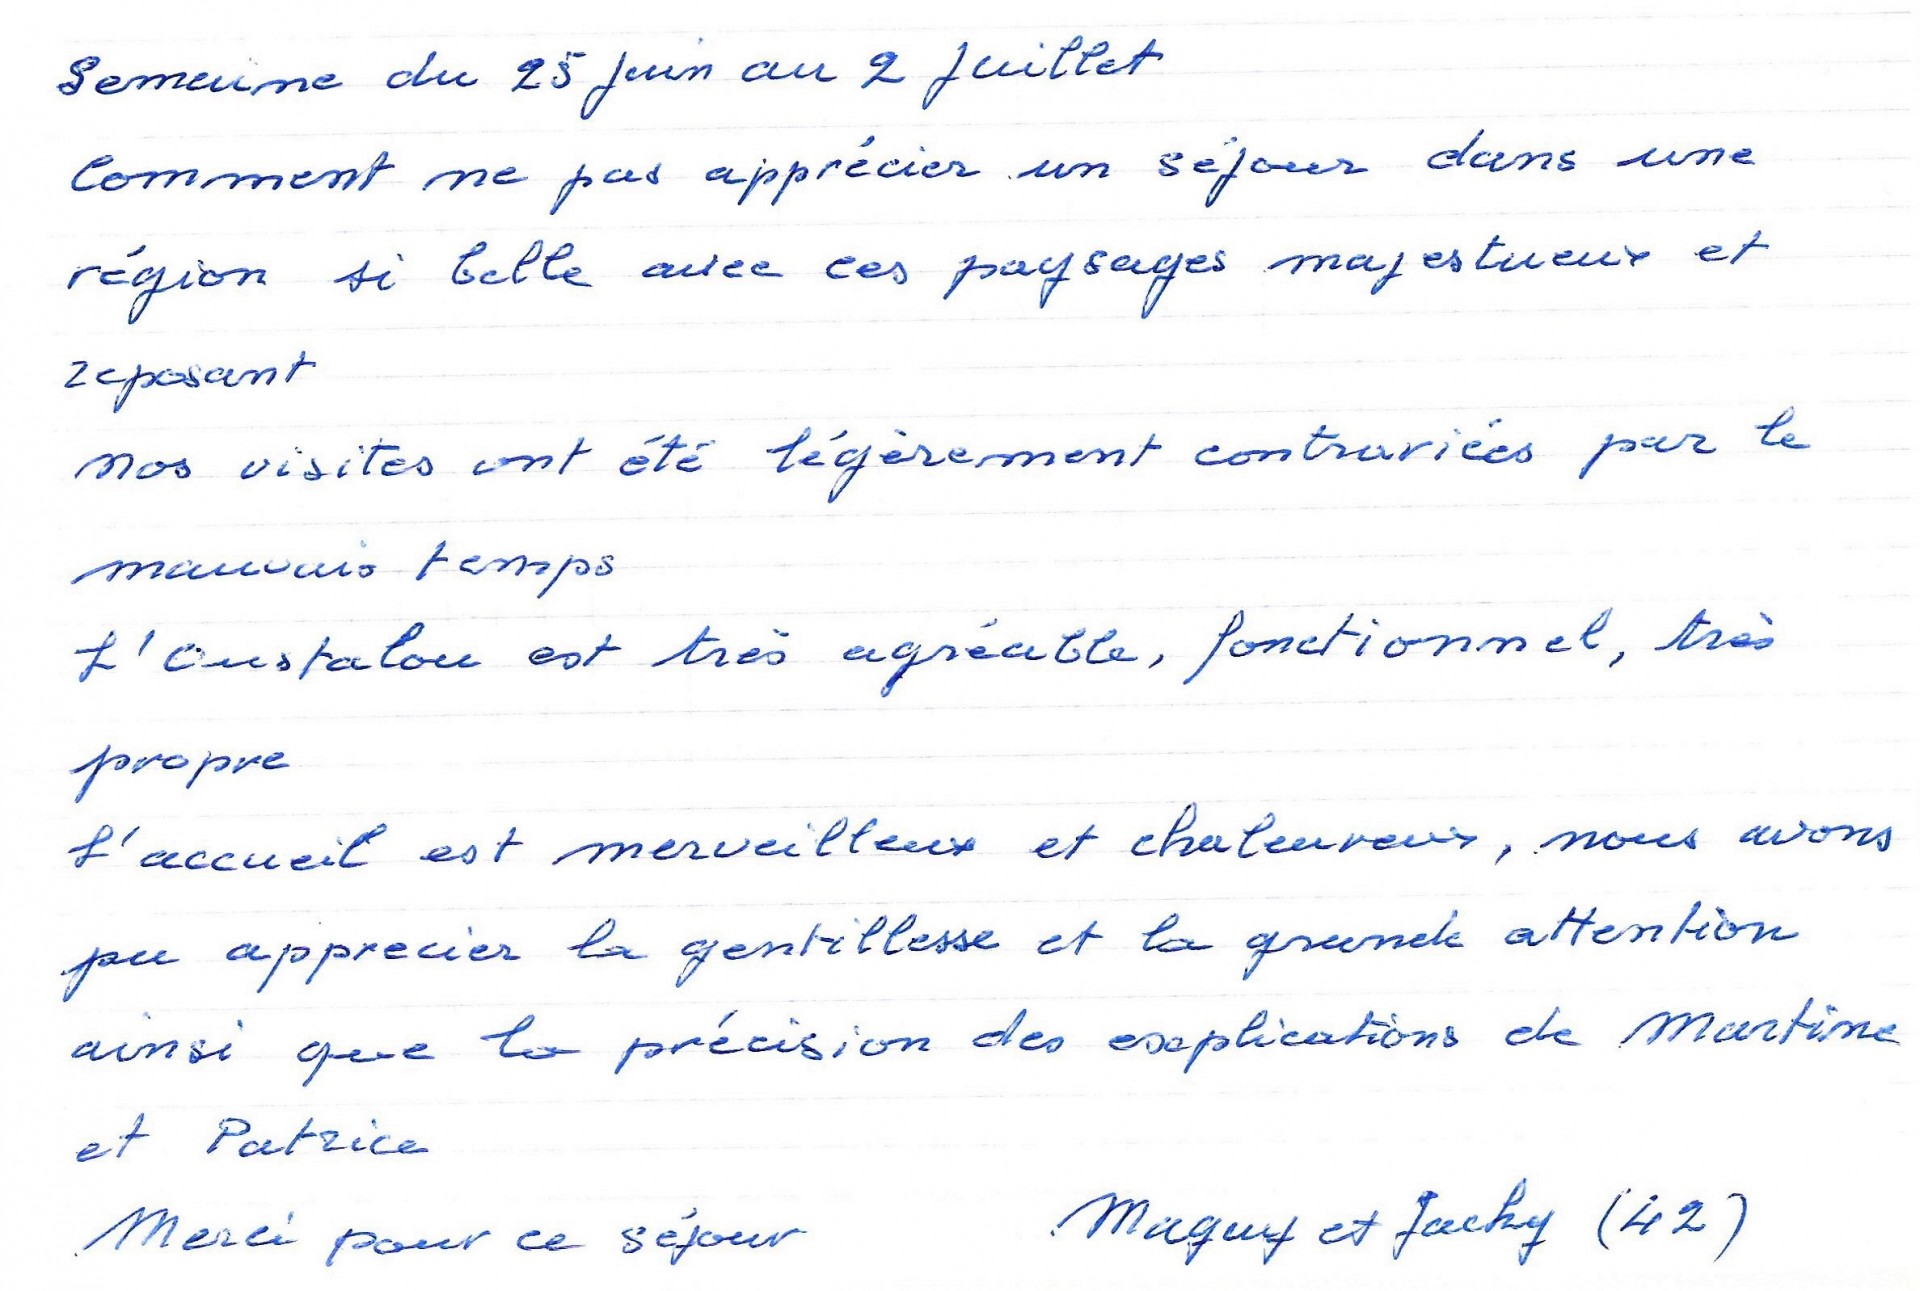 Semaine du 25 juin au 2 juillet
Comment ne pas apprécier un séjour dans une
région si belle avec ces paysages majestueux et
reposant
Nos visites ont été légèrement contrariées par le
mauvais temps
L'Oustalou est très agréable, fonctionnel, très
propre
L'accueil est merveilleux et chaleureux, nous avons
pu apprecier la gentillesse et la grande attention
ainsi que la précision des explications de Martine
et Patrice
Merci pour ce séjour Maguy et Jacky (42)